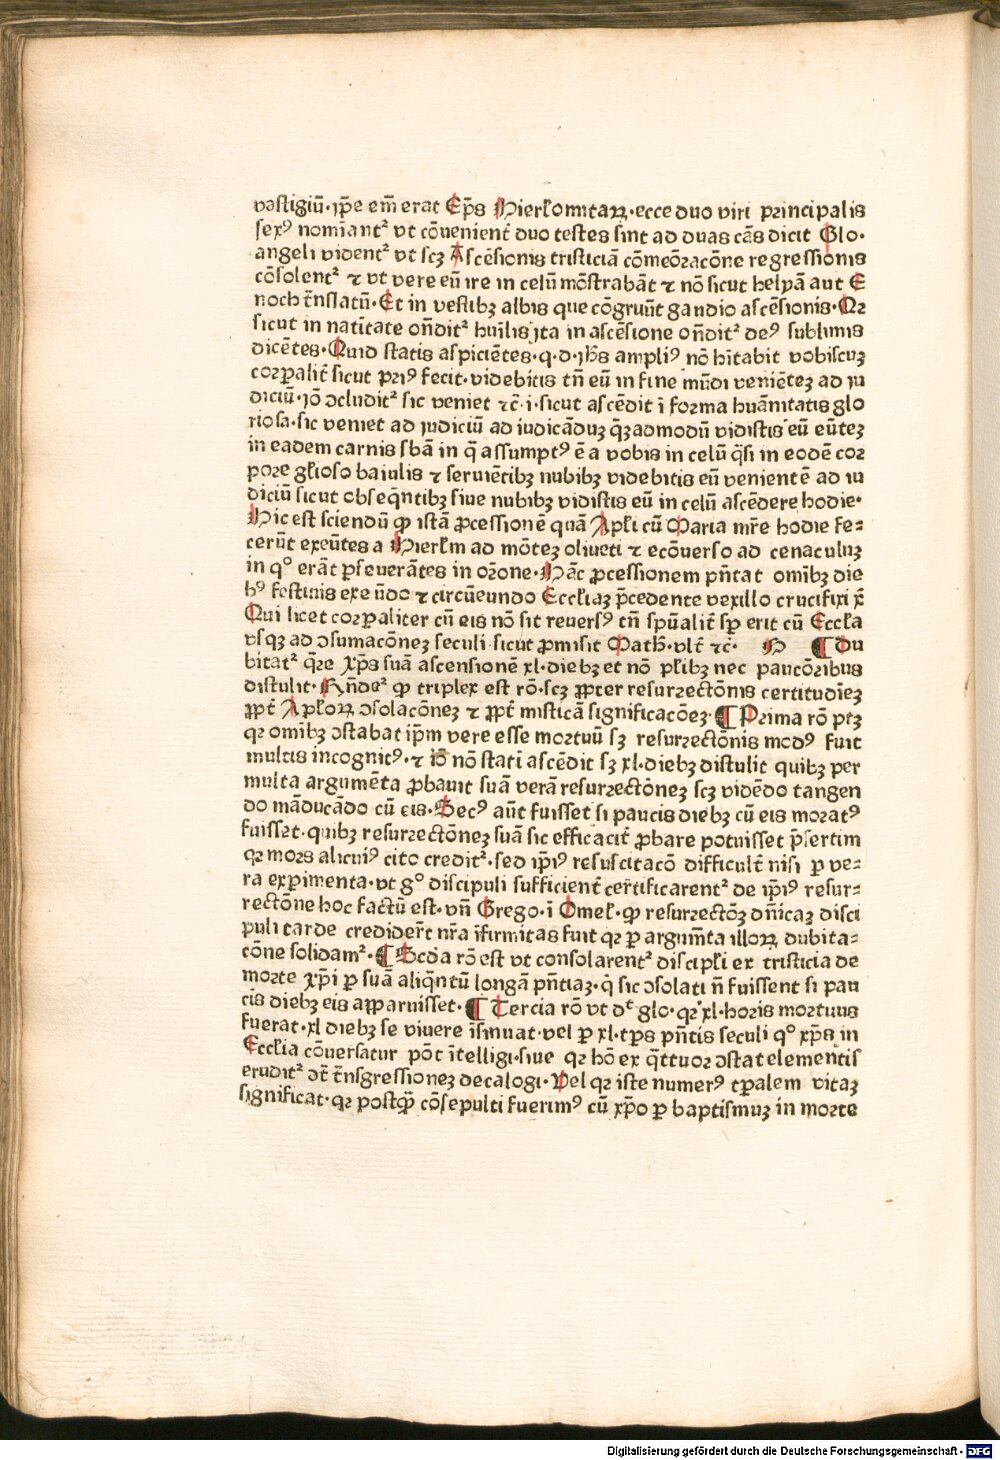 vestigiū·ip̄e em̄ erat Ep̄s Hierl̄omitaꝝ·ecce duo viri principalis
sexꝰ nomīantᷣ vt cōvenient̄ duo testes sint ad duas cās dicit Glo·
angeli vidентᷣ vt scꝫ Ascēsionis tristiciā cōmeōracōne regressionis
cōsolentᷣ ⁊ vt vere eū ire in celū mōstrabāt ⁊ nō sicut helyā aut E
noch t̄nslatū·Et in vestibꝫ albis que cōgruūt gaudio ascēsionis·Qꝛ
sicut in natītate on̄ditᷣ huīlis ita in ascēsione on̄ditᷣ deꝰ sublimis
dicētes·Quid statis aspiciētes·q·d·ih̄s ampliꝰ nō hītabit vobiscuꝫ
corp̄alit̄ sicut priꝰ fecit·videbitis tn̄ eū in fine mūdi veniēteꝫ ad iu
diciū·iō ↄcluditᷣ sic veniet ⁊c̄·i·sicut ascēdit ī forma huāitatis glo
riosa·sic veniet ad iudiciū ad iudicāduꝫ qꝫadmodū vidistis eū eūteꝫ
in eadem carnis sb̄a in q̄ assumptꝰ ē a vobis in celū q̄si in eodē cor
pore gl̄ioso baiulis ⁊ servīetibꝫ nubibꝫ videbitis eū venientē ad iu
diciū sicut obseq̄ntibꝫ siue nubibꝫ vidistis eū in celū ascēdere hodie·
Hic est sciendū ꝙ istā ꝓcessionē quā Apl̄i cū Maria mr̄e hodie fe⸗
cerūt exeūtes a Hierl̄m ad mōteꝫ oliueti ⁊ ecōuerso ad cenaculuꝫ
in q° erāt ꝑseuerātes in oꝛone·Hāc ꝓcessionem pn̄tat omībꝫ die
bꝰ festiuis exeūdo ⁊ circūeundo Eccl̄iaꝫ p̄cedente vexillo crucifixi x̄
Qui licet corꝑaliter cū eis nō sit reuersꝰ tn̄ spūalit̄ sp̄ erit cū Eccl̄a
vsqꝫ ad ↄsumacōneꝫ seculi sicut ꝓmisit Math·vlt̄ ⁊c̄· H ¶ Du
bitatᷣ q̄re xp̄s suā ascensionē xl·diebꝫ et nō pl̄ibꝫ nec paucōribus
distulit·Rn̄deᷣ ꝙ triplex est rō·scꝫ ꝓpter resurrectōnis certitudīeꝫ
ꝓpt̄ Apl̄oꝝ ↄsolacōneꝫ ⁊ ꝓpt̄ misticā significacōeꝫ·¶ Prima rō ptꝫ
qꝛ omībꝫ ↄstabat ip̄m vere esse mortuū sꝫ resurrectōnis modꝰ fuit
multis incognitꝰ·⁊ iō nō statī ascēdit sꝫ xl·diebꝫ distulit quibꝫ per
multa argumēta ꝓbauit suā verā resurrectōneꝫ scꝫ vidēdo tangen
do māducādo cū eis·Secꝰ aūt fuisset si paucis diebꝫ cū eis moratꝰ
fuisset·quibꝫ resurrectōneꝫ suā sic efficacit̄ ꝓbare potuisset p̄sertim
qꝛ mors alicuiꝰ cito creditᷣ·sed ip̄iꝰ resuscitacō difficult̄ nisi ꝑ ve⸗
ra exꝑimenta·vt g° discipuli sufficient̄ certificarentᷣ de ip̄iꝰ resur⸗
rectōne hoc factū est·vn̄ Grego·ī Omel̄·ꝙ resurrectōꝫ dn̄icaꝫ disci
puli tarde credider̄t nr̄a īfirmitas fuit qꝛ ꝑ argum̄ta illoꝝ dubita⸗
cōne solidamᷣ·¶ Scd̄a rō est vt consolarentᷣ discipl̄i ex tristicia de
morte xp̄i ꝑ suā aliq̄ntū longā pn̄tiaꝫ·q̄ sic ↄsolati n̄ fuissent si pau
cis diebꝫ eis apparuisset·¶ Tercia rō vt dᵗ glo·qꝛ xl·horis mortuus
fuerat·xl diebꝫ se viuere īsinuat·vel ꝑ xl·tp̄s pn̄tis seculi q° xp̄s in
Eccl̄ia cōuersatur pōt ītelligi·siue qꝛ hō ex q̄ttuor ↄstat elementis
eruditᷣ ↄt̄ t̄nsgressioneꝫ decalogi·Vel qꝛ iste numerꝰ tꝑalem vitaꝫ
significat·qꝛ postꝙ̄ cōsepulti fuerimꝰ cū xp̄o ꝑ baptismuꝫ in morte
Digitalisierung gefördert durch die Deutsche Forschungsgemeinschaft · DFG